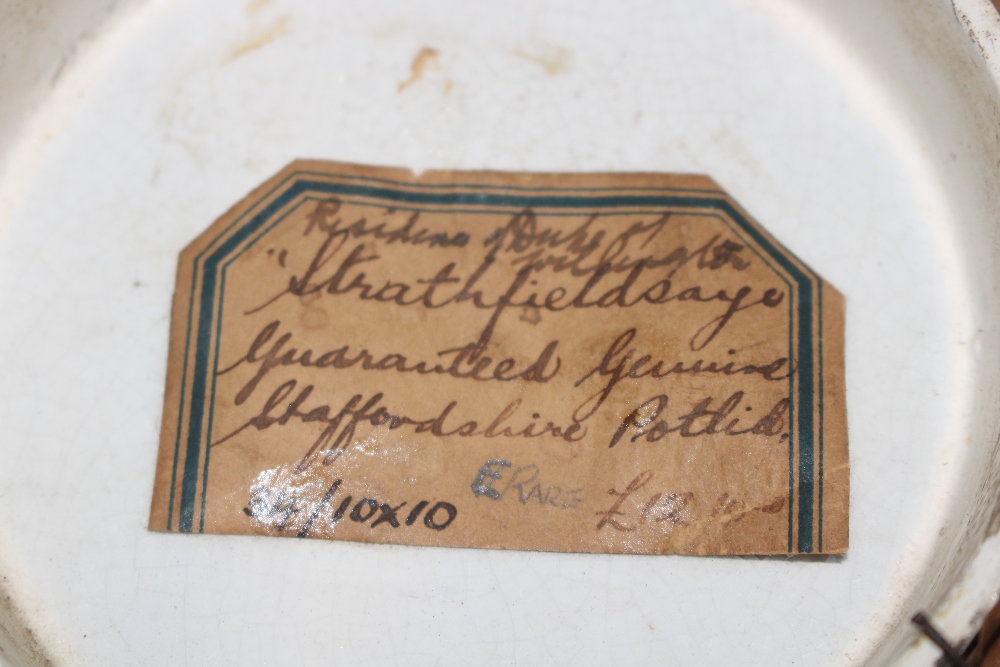 Residence of Duke of
Wellington
"Strathfieldsaye
Guaranteed Genuine
Staffordshire Potlid.
E RARE
/10X10 £12